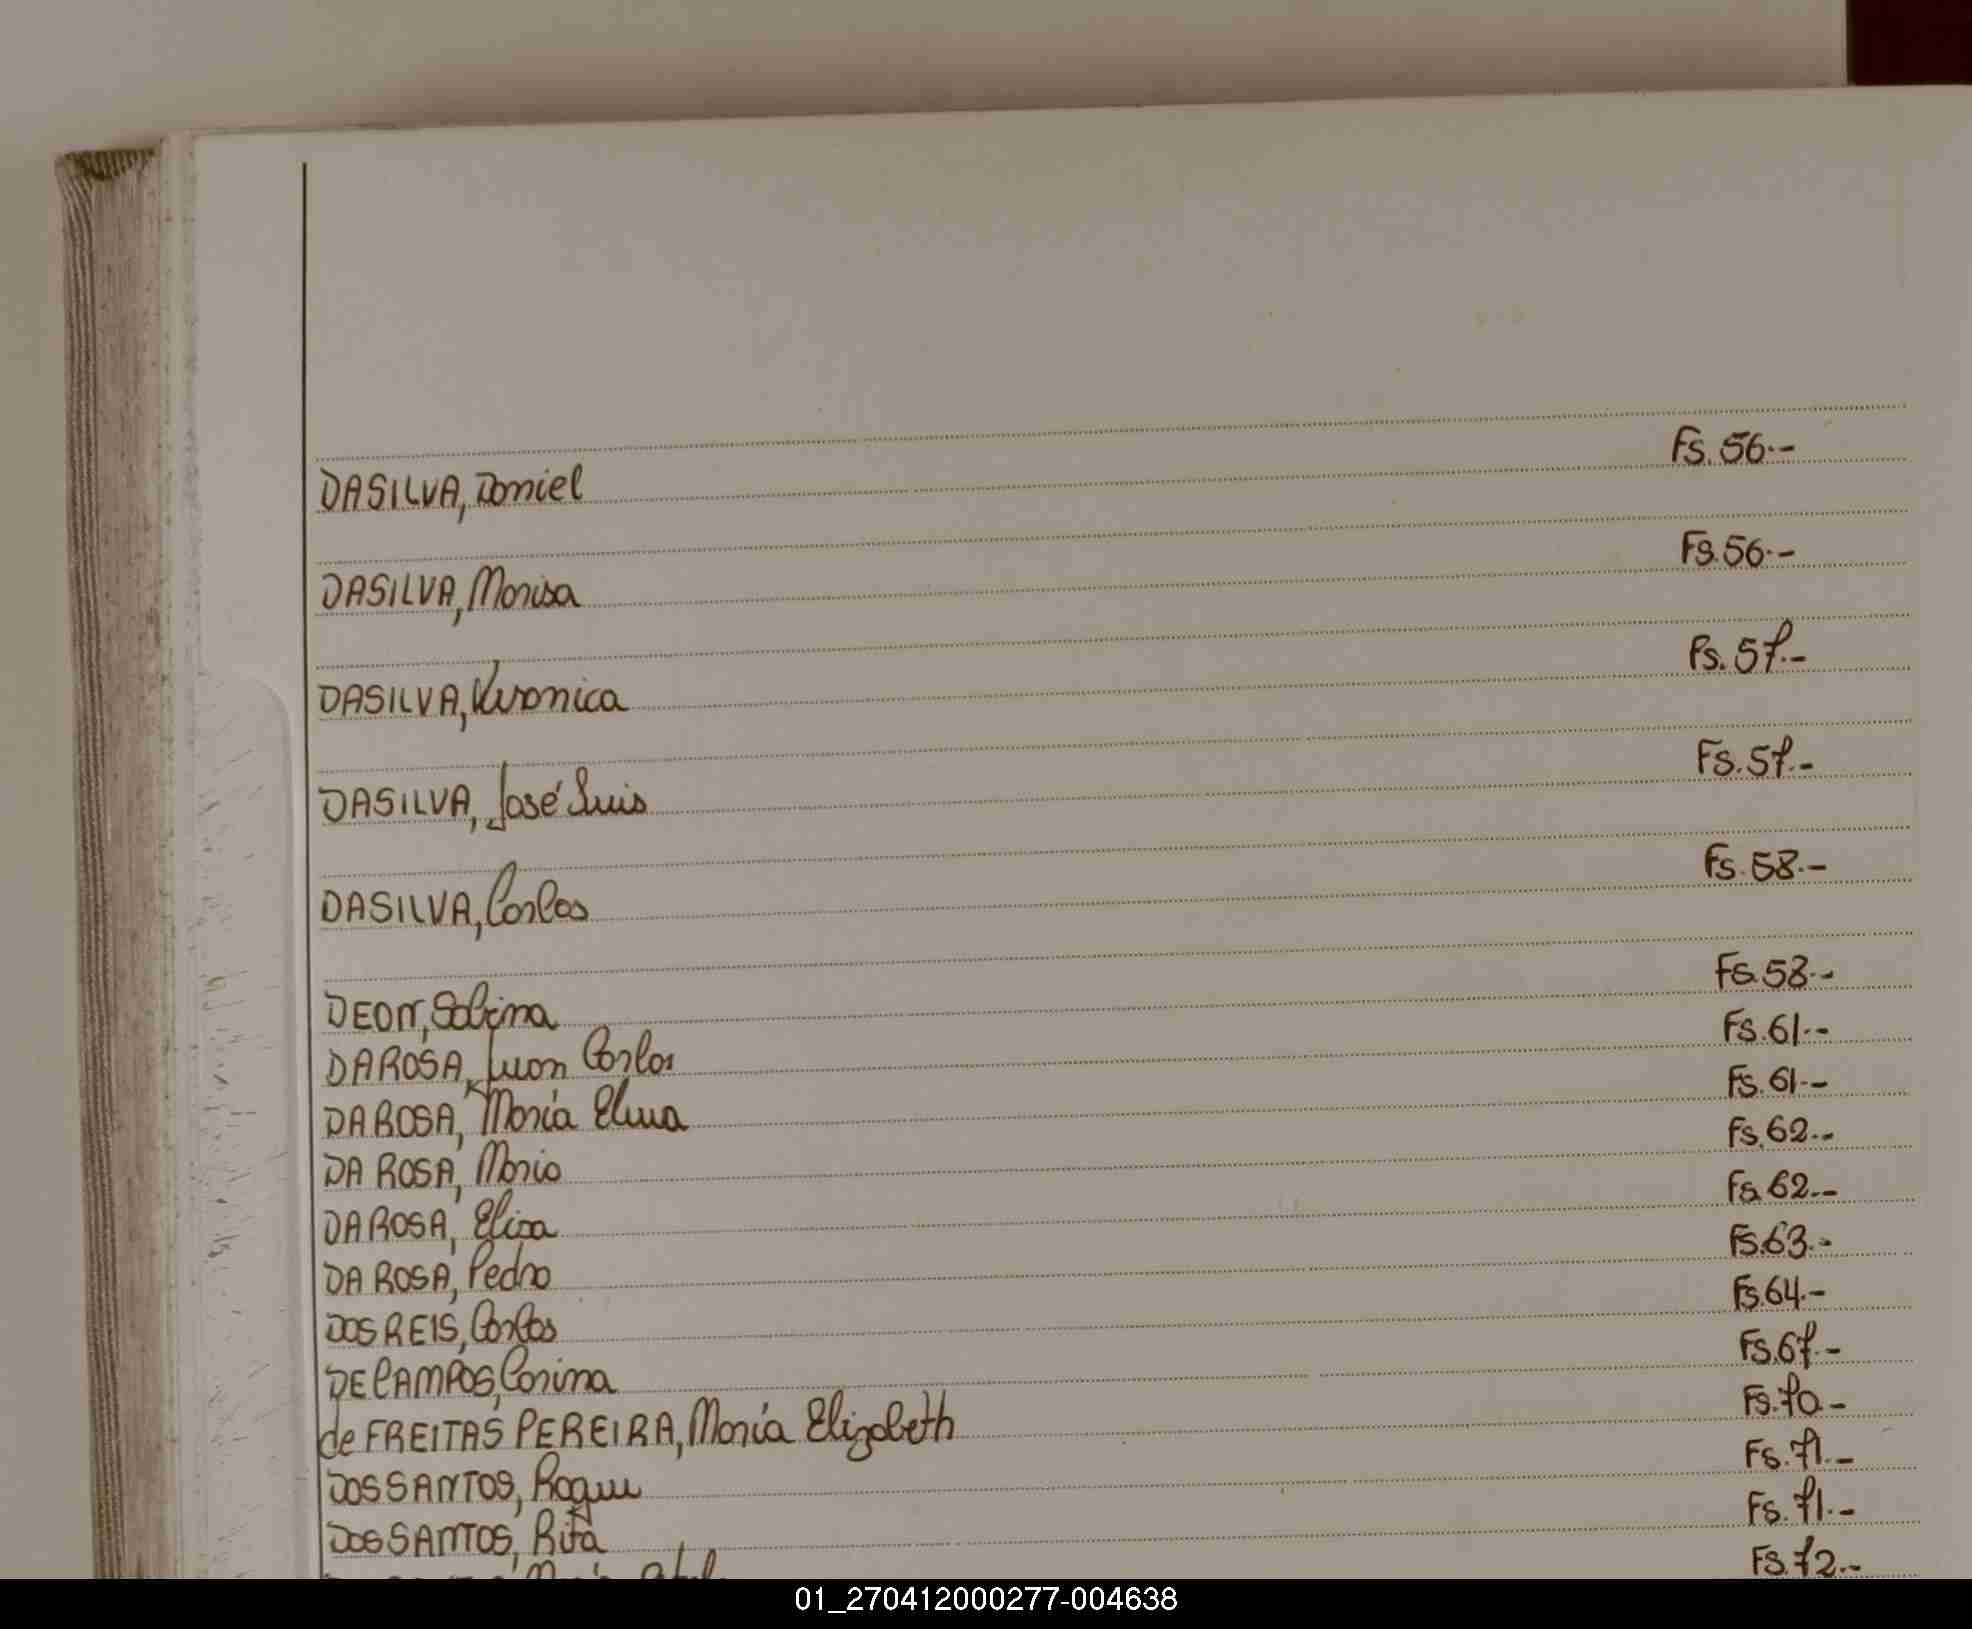 DASILVA, Daniel Fs. 56.-
DASILVA, Marisa Fs. 56.-
DASILVA, Veronica Fs. 57.-
DASILVA, José Luis Fs. 57.-
DASILVA, Carlos Fs. 58.-
DEON, Sabina Fs. 58.-
DAROSA, Juan Carlos Fs. 61.-
DA ROSA, María Elena Fs. 61.-
DA ROSA, Mario Fs. 62.-
DA ROSA, Elisa Fs. 62.-
DA ROSA, Pedro Fs. 63.-
DOS REIS, Carlos Fs. 64.-
DE CAMPOS, Corina Fs. 67.-
de FREITAS PEREIRA, María Elizabeth Fs. 70.-
DOS SANTOS, Roque Fs. 71.-
DOS SANTOS, Rita Fs. 71.-
Fs. 72.-
01_270412000277-004638